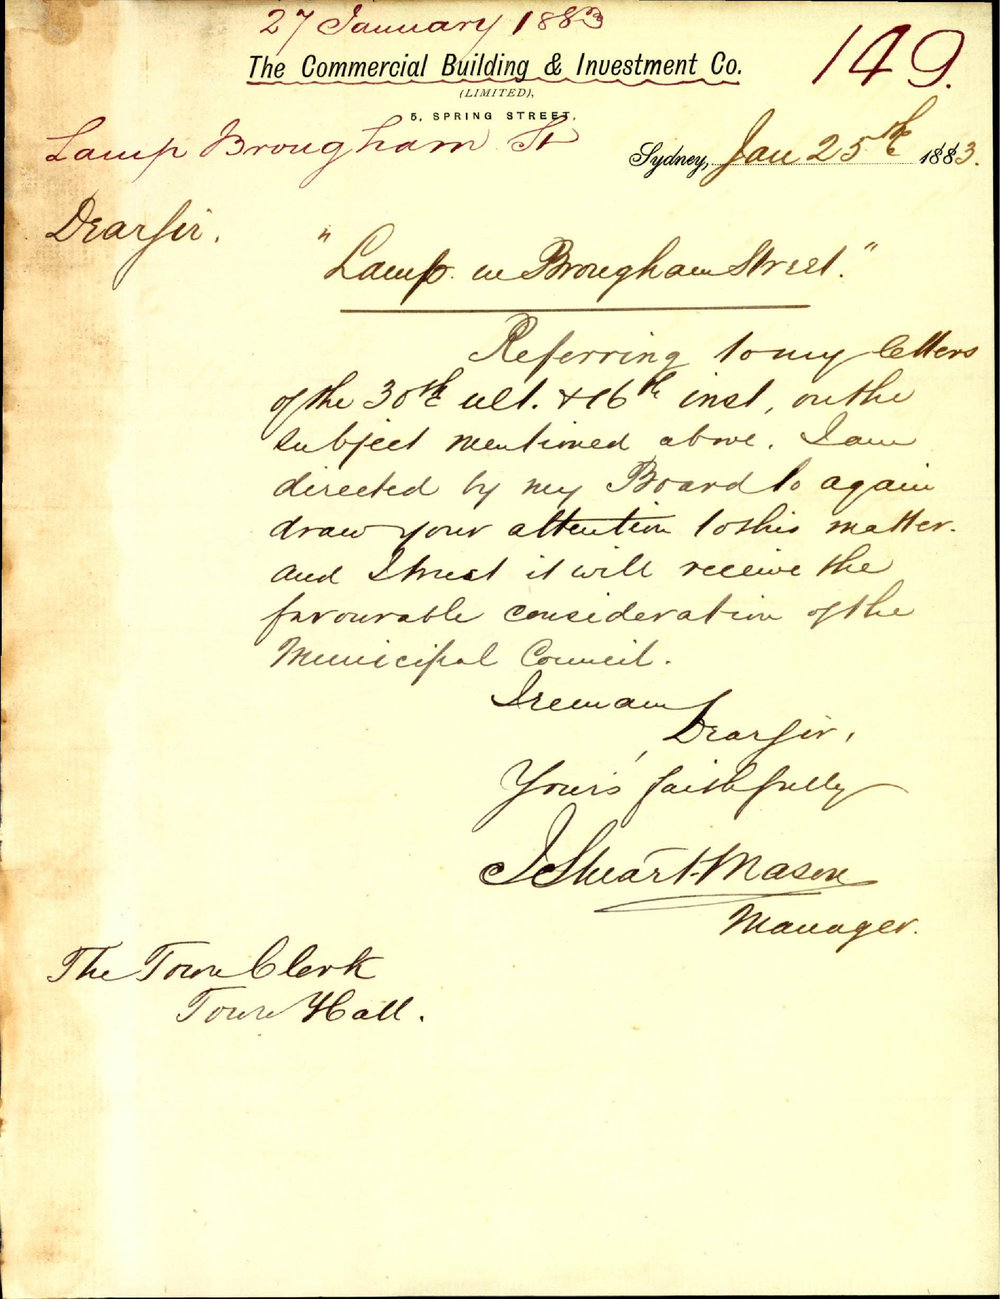 27 January 1883
149.
The Commercial Building & Investment Co.
(LIMITED),
5, SPRING STREET,
Lamp Brougham St
Sydney, Jan 25th 1883.
Dear Sir.
"Lamp in Brougham Street."
Referring to my letters
of the 30th ult. & 16th inst, on the
subject mentioned above. I am
directed by my Board to again
draw your attention to this matter.
and I trust it will receive the
favourable consideration of the
Municipal Council.
I remain
Dear Sir,
Yours faithfully
J Stuart-Mason
Manager.
The Town Clerk
Town Hall.